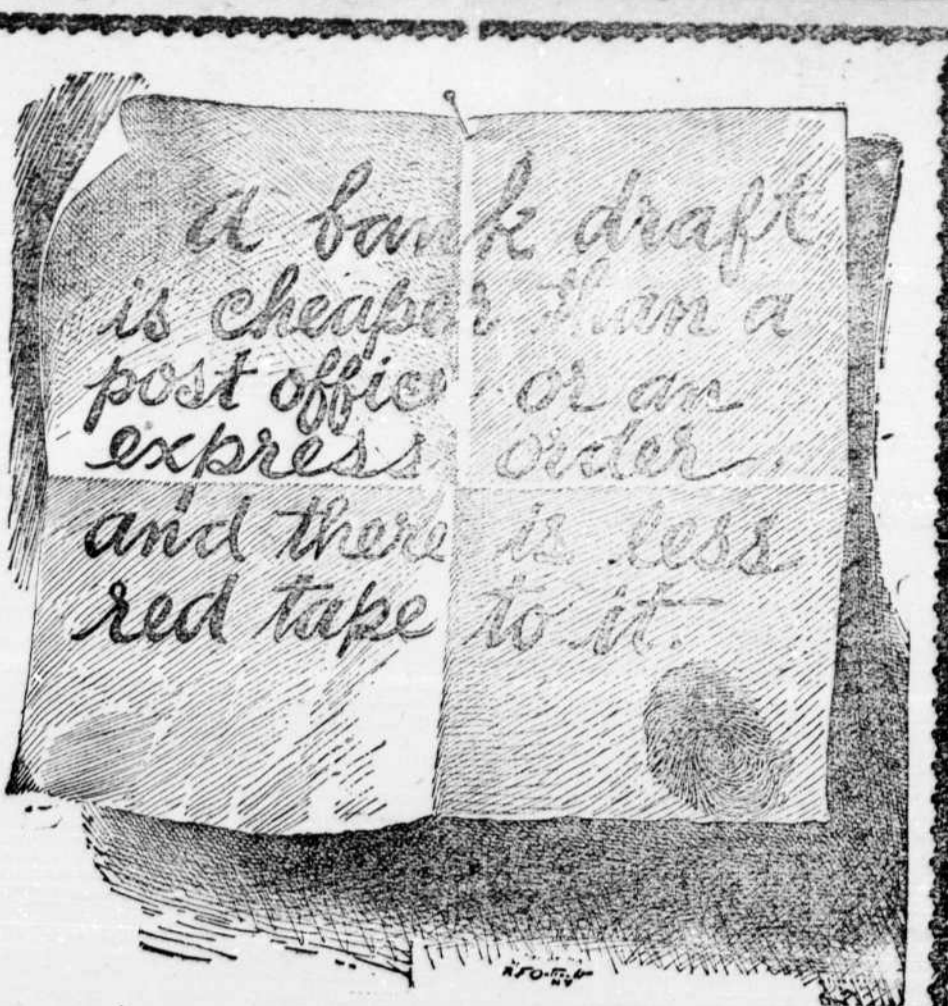 A bank draft
is cheaper than a
post office or an
express order
and there is less
red tape to it.